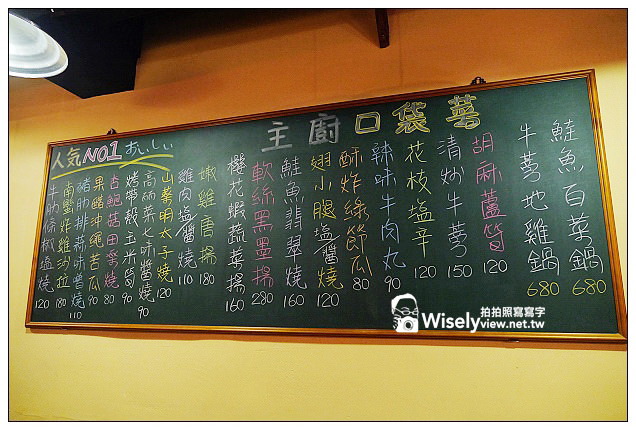 主廚口袋菜
人気NO1 おいしい
鮭魚百菇鍋 680
牛蒡地雞鍋 680
胡麻蘆筍 120
清炒牛蒡 150
花枝塩辛 120
辣味牛肉丸 90
酥炸綠節瓜 80
翅小腿塩醬燒 120
鮭魚翡翠燒 160
軟絲黑墨揚 280
櫻花蝦蔬菜揚 160
嫩雞唐揚 180
雞肉塩醬燒 110
山藥明太子燒 120
高麗菜七味醬燒 90
烤帶殼玉米筍 90
杏鮑菇田樂燒 80
果醋沖繩苦瓜 90
豬肋排蒜味噌燒 110
南蠻炸雞沙拉 180
牛肋條椒塩燒 120
拍拍照寫寫字
Wiselyview.net.tw